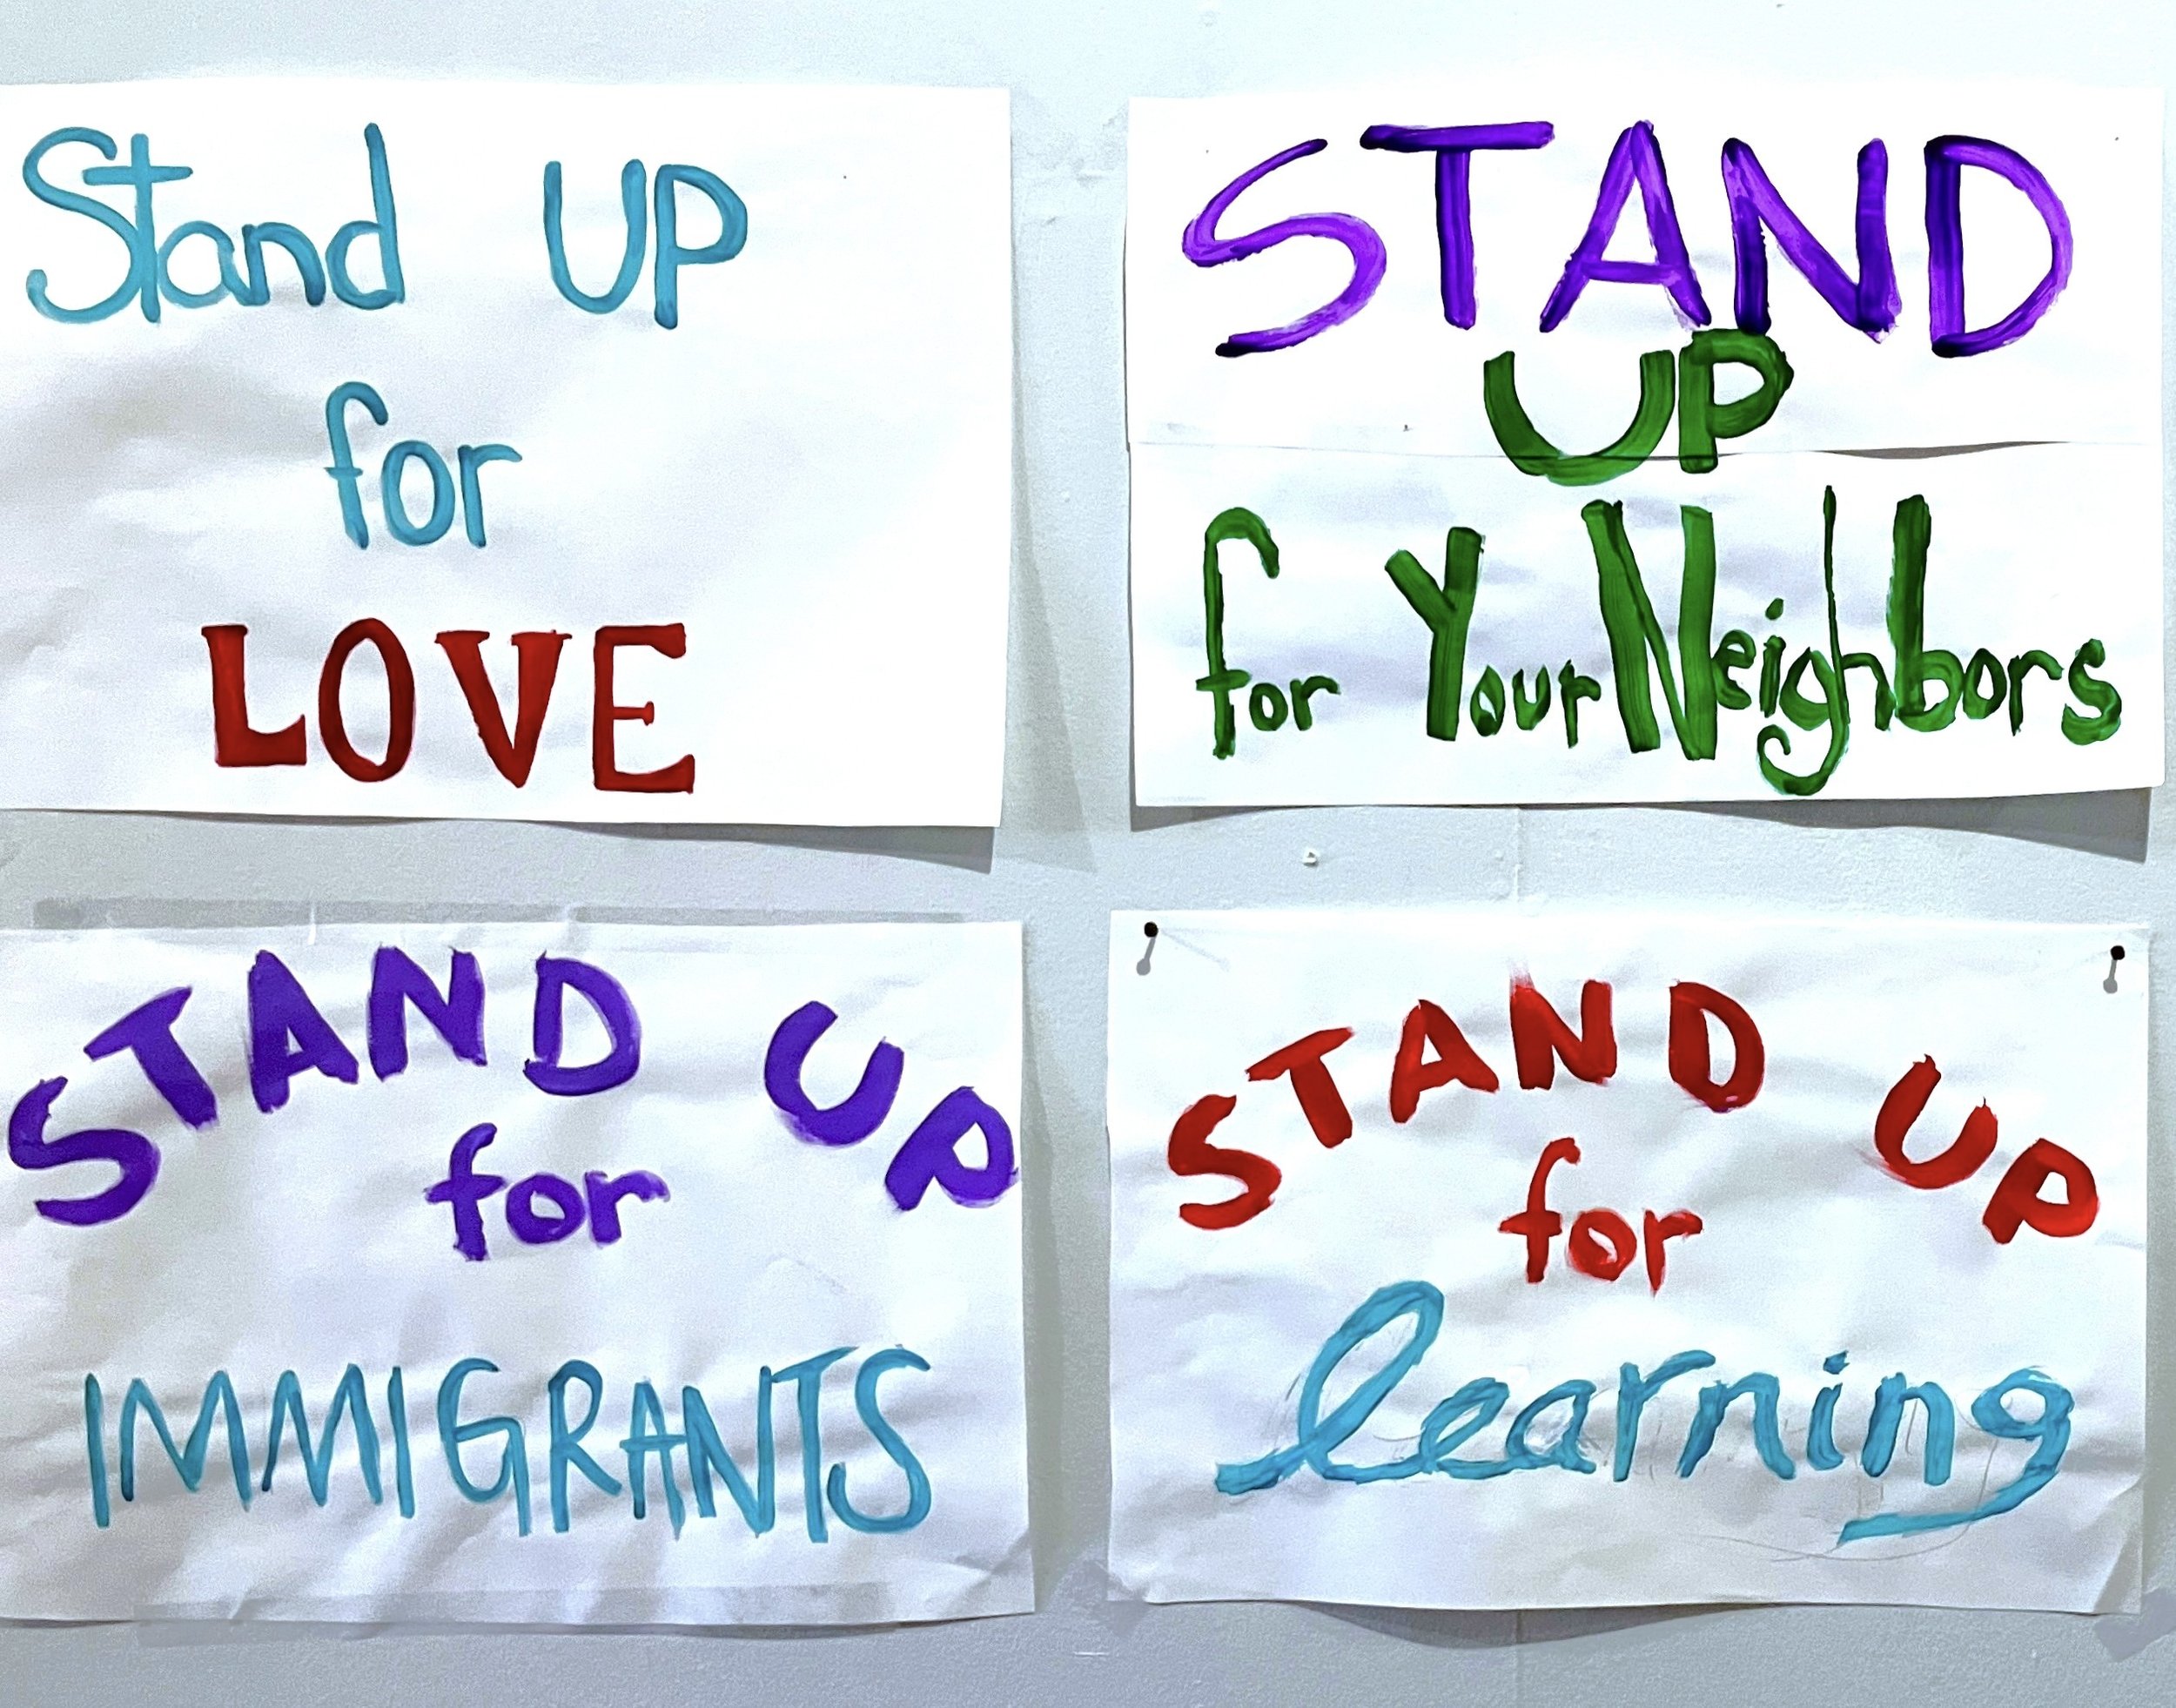 Stand UP
for
LOVE
STAND
UP
for Your Neighbors
STAND UP
for
IMMIGRANTS
STAND UP
for
learning